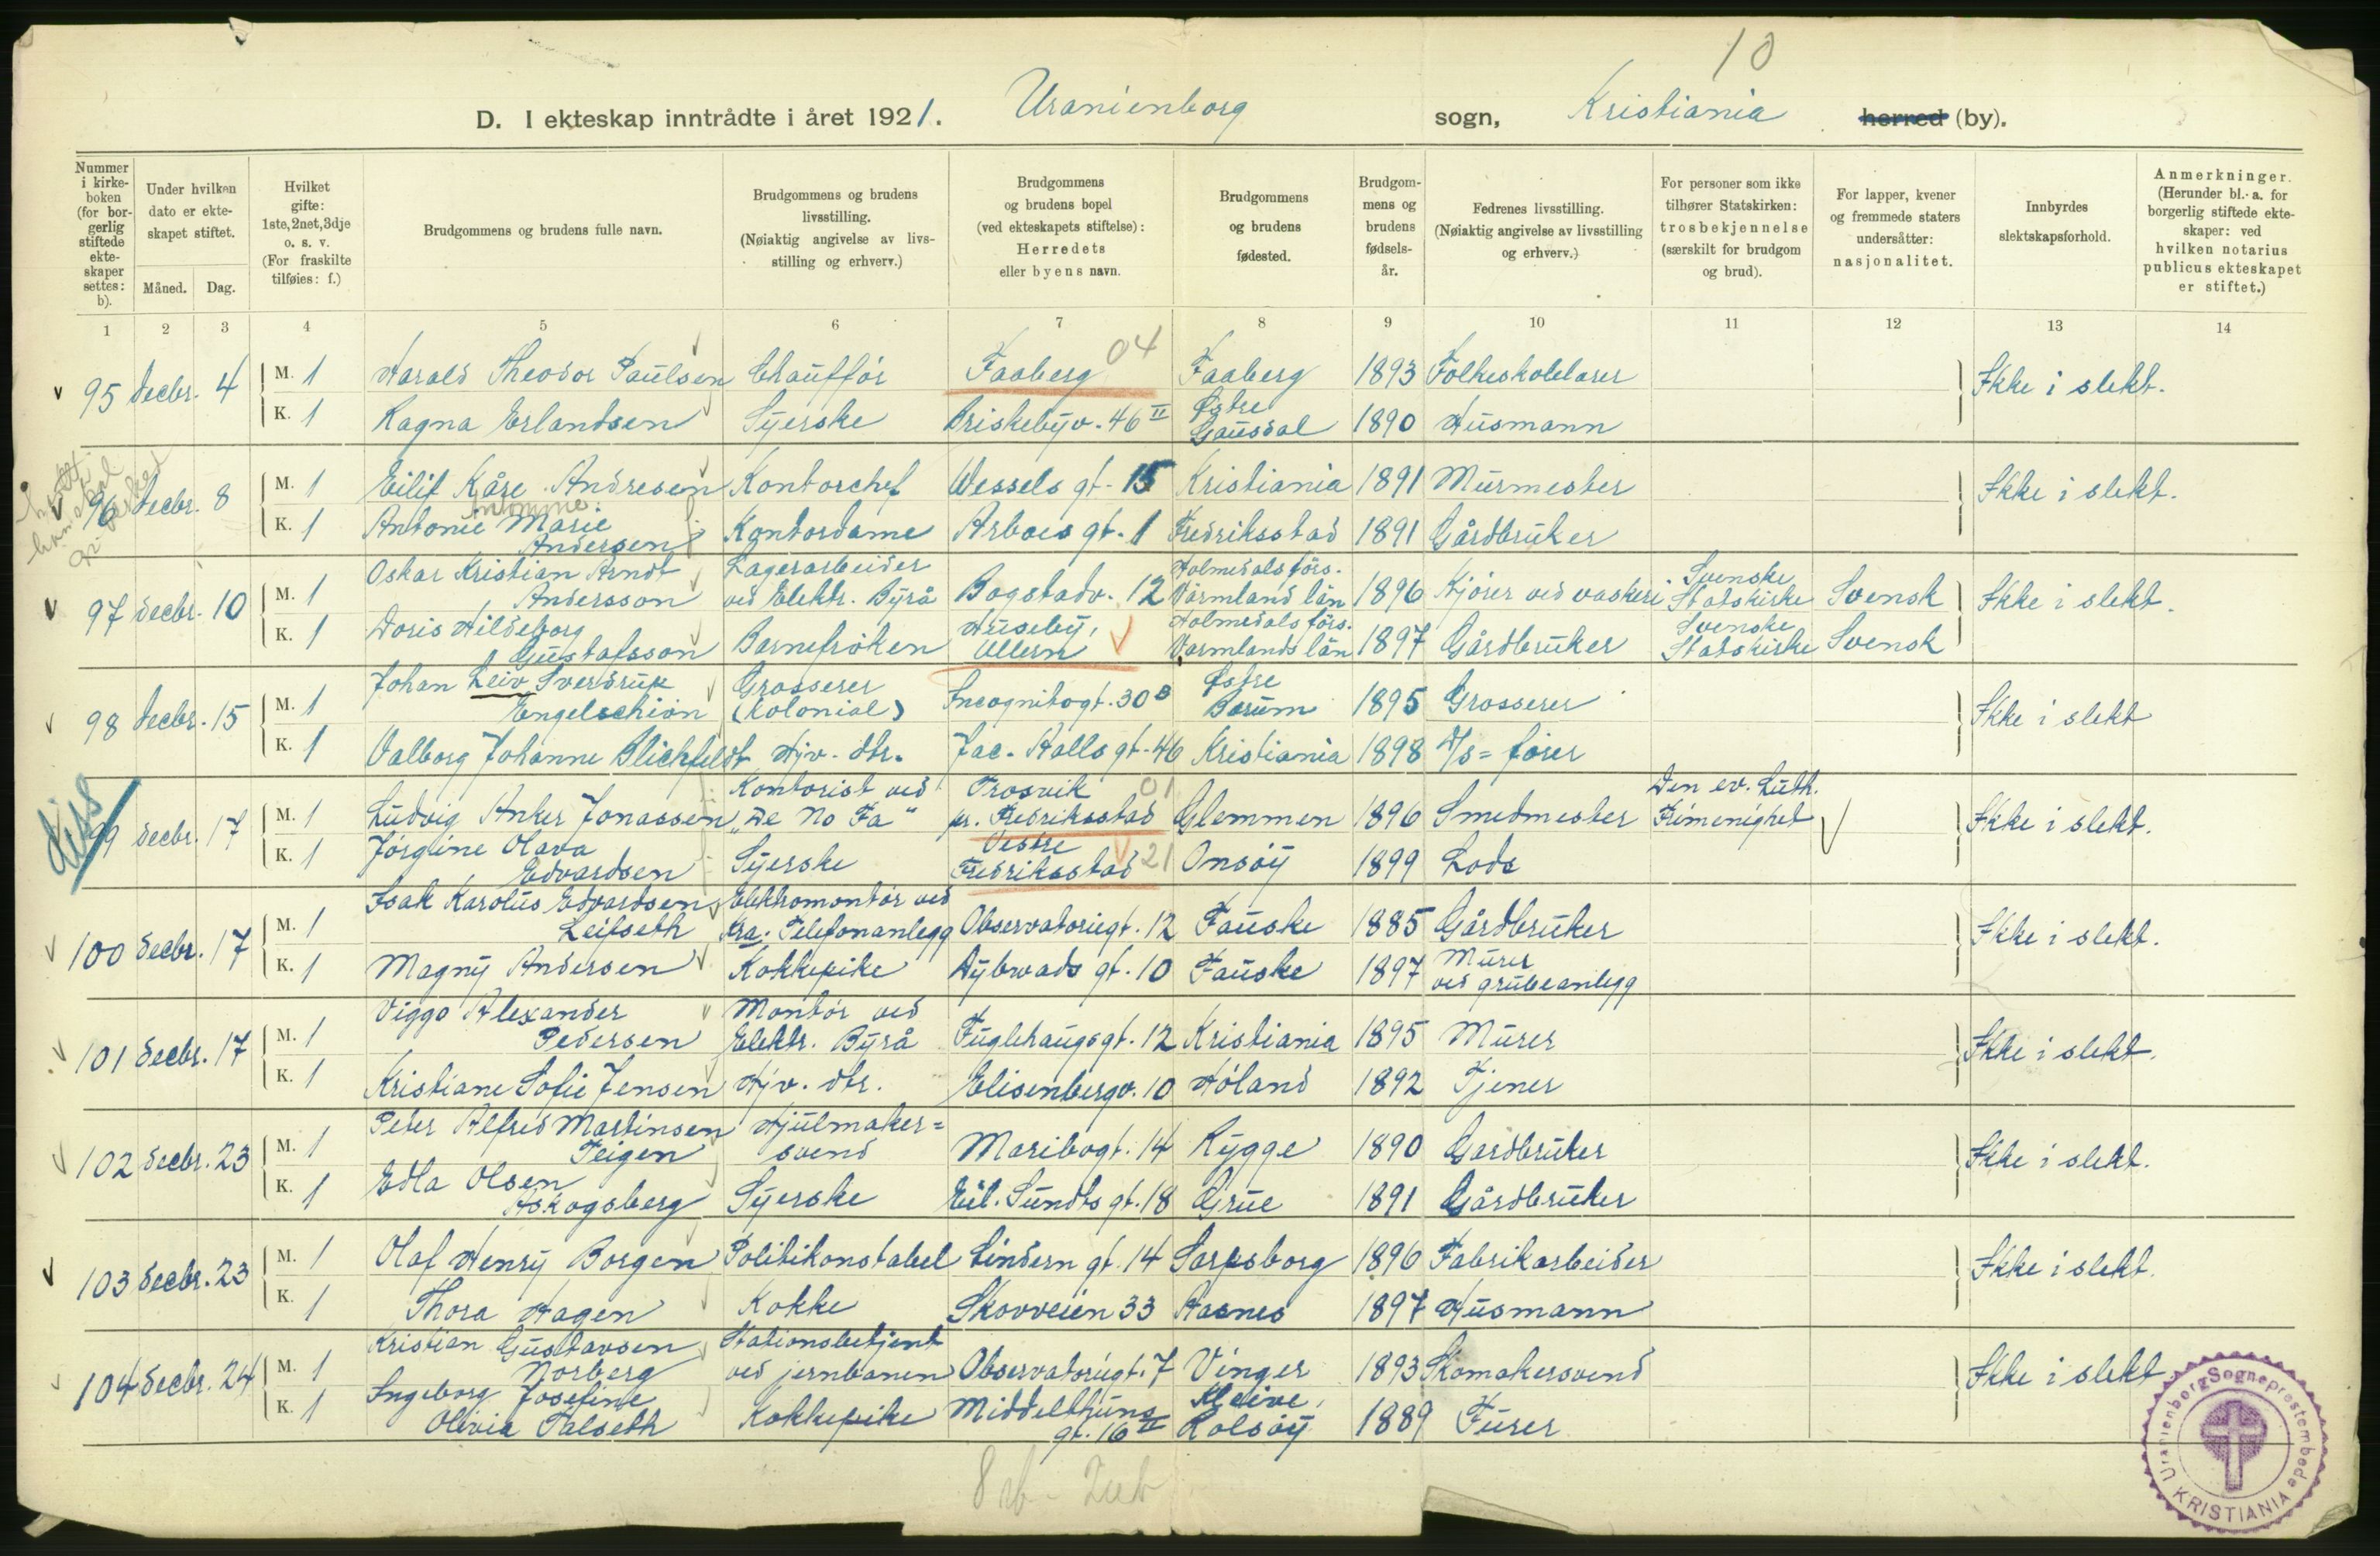 10
D. I ekteskap inntrådte i året 1921. Uranienborg sogn, Kristiania herred (by).
Nummer i kirke-boken (for bor-gerlig stiftede ekte-skaper settes: b).
Under hvilken dato er ekte-skapet stiftet.
Måned. Dag.
Hvilket gifte: 1ste, 2net, 3dje o. s. v. (For fraskilte tilføies: f.)
Brudgommens og brudens fulle navn.
Brudgommens og brudens livsstilling. (Nøiaktig angivelse av livs-stilling og erhverv.)
Brudgommens og brudens bopel (ved ekteskapets stiftelse): Herredets eller byens navn.
Brudgommens og brudens fødested.
Brudgom-mens og brudens fødsels-år.
Fedrenes livsstilling. (Nøiaktig angivelse av livsstilling og erhverv.)
For personer som ikke tilhører Statskirken: trosbekjennelse (særskilt for brudgom og brud).
For lapper, kvener og fremmede staters undersåtter: nasjonalitet.
Innbyrdes slektskapsforhold.
Anmerkninger. (Herunder bl. a. for borgerlig stiftede ekte-skaper: ved hvilken notarius publicus ekteskapet er stiftet.)
1 2 3 4 5 6 7 8 9 10 11 12 13 14
95 decbr. 4 M. 1 Harald Theodor Paulsen Chauffør Faaberg 04 Faaberg 1893 Folkeskolelærer Ikke i slekt.
K. 1 Ragna Erlandsen Syerske Briskebyv. 46 II Østre Gausdal 1890 Husmann
96 decbr. 8 M. 1 Eilif Kåre Andresen Kontorchef Wessels gt. 15 Kristiania 1891 Murmester Ikke i slekt.
K. 1 Antonie Marie Andersen Kontordame Arboes gt. 1 Fredriksstad 1891 Gårdbruker
97 decbr. 10 M. 1 Oskar Kristian Arndt Andersson Lagerarbeider ved Elektr. Byrå Bogstadv. 12 Holmedals förs. Värmland län 1896 Kjører ved vaskeri Svenske Statskirke Svensk Ikke i slekt.
K. 1 Doris Hildeborg Gustafsson Barnefrøken Huseby, Ullern Holmedals förs. Värmlands län 1897 Gårdbruker Svenske Statskirke Svensk
98 decbr. 15 M. 1 Johan Leiv Sverdrup Engelschiøn Grosserer (Kolonial) Incognitogt. 30 B Østre Bærum 1895 Grosserer Ikke i slekt
K. 1 Valborg Johanne Blichfeldt Hjv. dtr. Jac. Halls gt. 46 Kristiania 1898 D/s=fører
99 decbr. 17 M. 1 Ludvig Anker Jonassen Kontorist ved "De No Fa" Trosvik pr. Fredriksstad 01 Glemmen 1896 Smedmester Den ev. Luth. Frimenighet Ikke i slekt.
K. 1 Jørgine Olava Edvardsen Syerske Vestre Fredriksstad 21 Onsøy 1899 Lods
100 decbr. 17 M. 1 Isak Karolus Edvardsen Leifseth Elektromontør ved Kra. Telefonanlegg Observatoriegt. 12 Fauske 1885 Gårdbruker Ikke i slekt.
K. 1 Magny Andersen Kokkepike Dybwads gt. 10 Fauske 1897 Murer ved grubeanlegg
101 decbr. 17 M. 1 Viggo Alexander Pedersen Montør ved Elektr. Byrå Fuglehaugsgt. 12 Kristiania 1895 Murer Ikke i slekt.
K. 1 Kristiane Sofie Jensen Hjv. dtr. Elisenbergv. 10 Høland 1892 Tjener
102 decbr. 23 M. 1 Peder Alfred Martinsen Teigen Hjulmaker=svend Maribogt. 14 Rygge 1890 Gardbruker Ikke i slekt.
K. 1 Edla Olsen Askogsberg Syerske Eil. Sundts gt. 18 Grue 1891 Gårdbruker
103 decbr. 23 M. 1 Olaf Henry Borgen Politikonstabel Lindern gt. 14 Sarpsborg 1896 Fabrikarbeider Ikke i slekt.
K. 1 Thora Hagen Kokke Skovveien 33 Hasnes 1897 Husmann
104 decbr. 24 M. 1 Kristian Gustavsen Norberg Stationsbetjent ved jernbanen Observatoriegt. 7 Vinger 1893 Skomakersvend Ikke i slekt
K. 1 Ingeborg Josefine Olivia Talseth Kokkepike Middelthuns gt. 16 II Kleive, Bolsøy 1889 Furer
Uranienborg Sogneprestembede KRISTIANIA